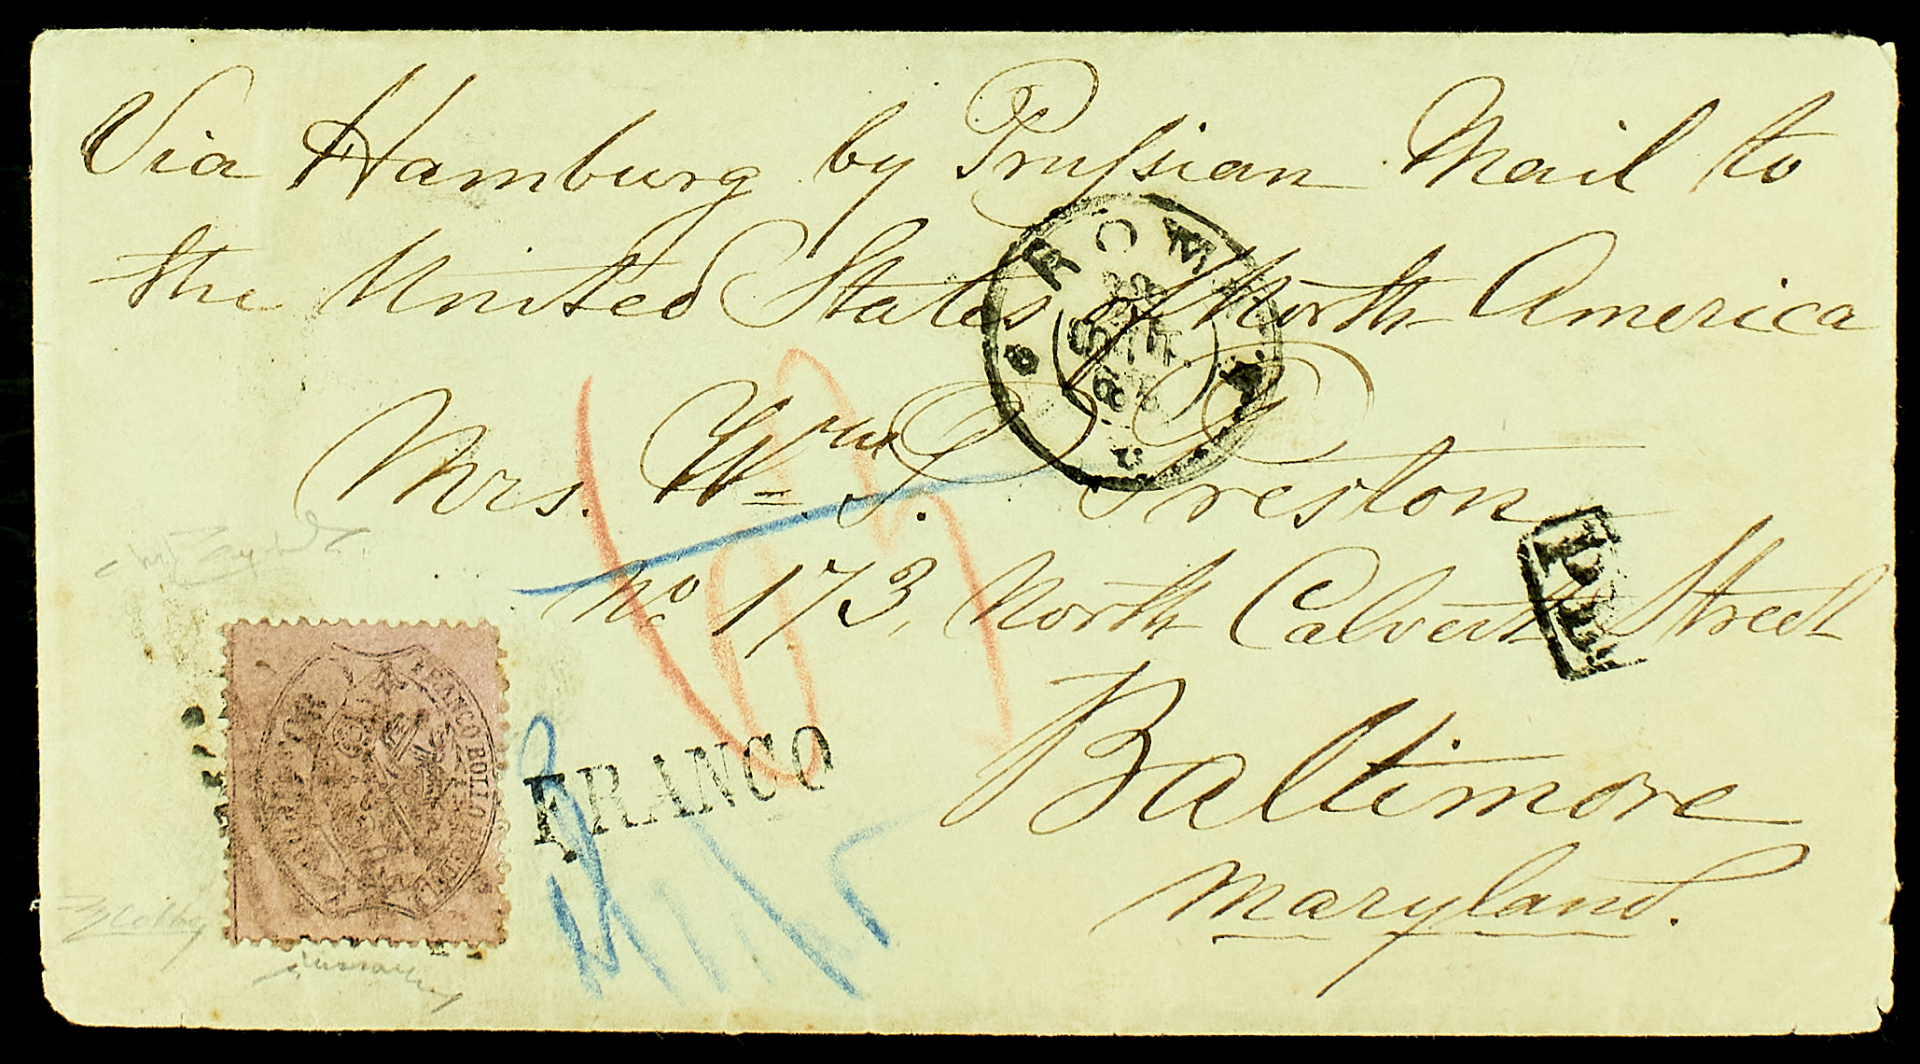 Via Hamburg by Prussian Mail to
the United States of North America
ROMA
22
SET.
68
Mrs. Wm. S. Preston
No. 173, North Calvert Street
Baltimore
Maryland.
FRANCO
P.D.
FRANCO BOLLO